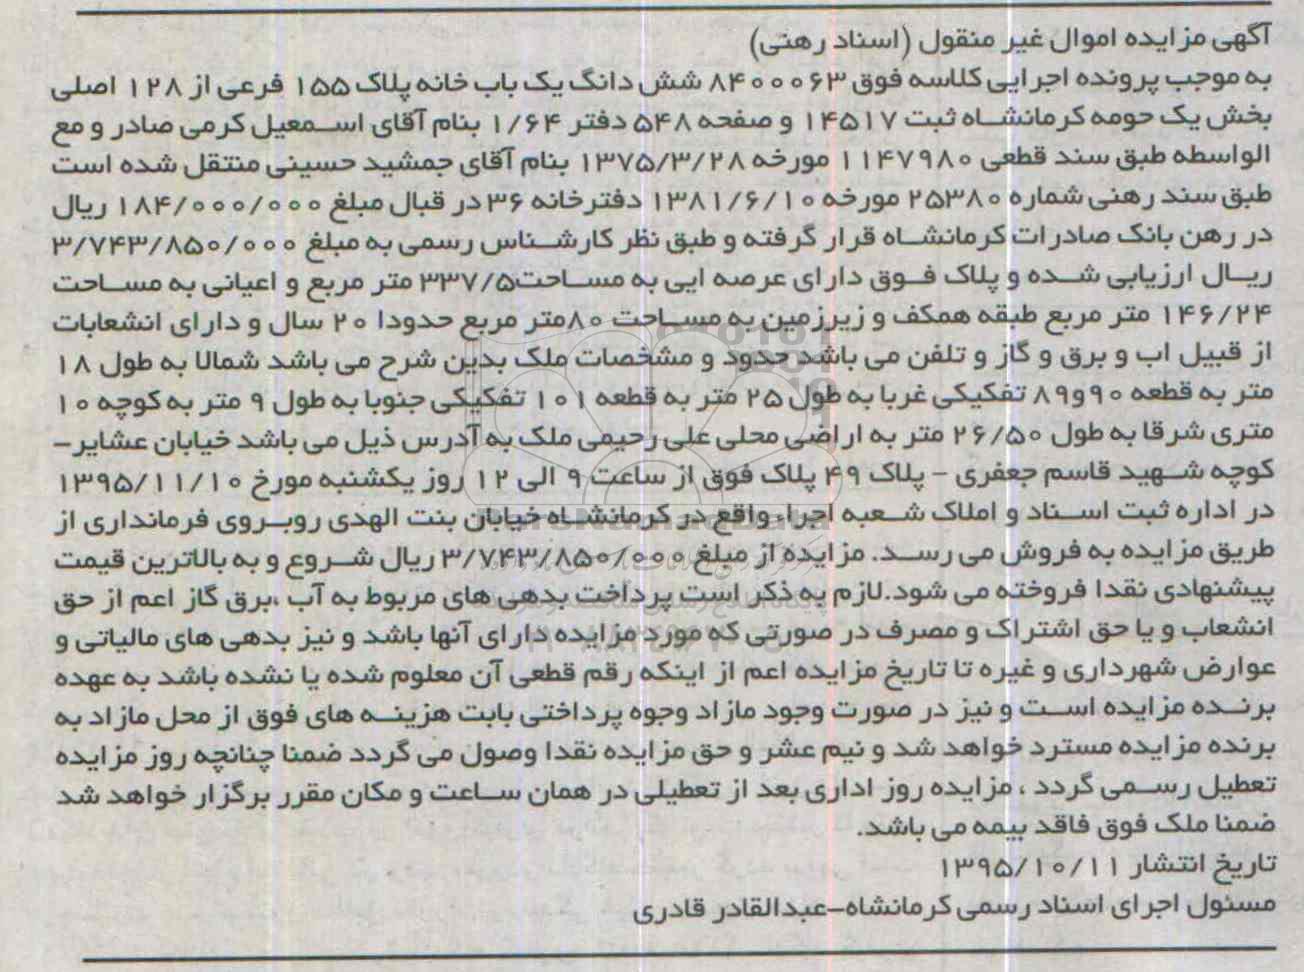 آگهی مزایده اموال غیر منقول (اسناد رهنی)
به موجب پرونده اجرایی کلاسه فوق ۸۴۰۰۰۶۳ شش دانگ یک باب خانه پلاک ۱۵۵ فرعی از ۱۲۸ اصلی
بخش یک حومه کرمانشاه ثبت ۱۴۵۱۷ و صفحه ۵۴۸ دفتر ۱/۶۴ بنام آقای اسمعیل کرمی صادر و مع
الواسطه طبق سند قطعی ۱۱۴۷۹۸۰ مورخه ۱۳۷۵/۳/۲۸ بنام آقای جمشید حسینی منتقل شده است
طبق سند رهنی شماره ۲۵۳۸۰ مورخه ۱۳۸۱/۶/۱۰ دفترخانه ۳۶ در قبال مبلغ ۱۸۴/۰۰۰/۰۰۰ ریال
در رهن بانک صادرات کرمانشاه قرار گرفته و طبق نظر کارشناس رسمی به مبلغ ۳/۷۴۳/۸۵۰/۰۰۰
ریال ارزیابی شده و پلاک فوق دارای عرصه ایی به مساحت۳۳۷/۵ متر مربع و اعیانی به مساحت
۱۴۶/۲۴ متر مربع طبقه همکف و زیرزمین به مساحت ۸۰متر مربع حدودا ۲۰ سال و دارای انشعابات
از قبیل اب و برق و گاز و تلفن می باشد حدود و مشخصات ملک بدین شرح می باشد شمالا به طول ۱۸
متر به قطعه ۹۰و۸۹ تفکیکی غربا به طول ۲۵ متر به قطعه ۱۰۱ تفکیکی جنوبا به طول ۹ متر به کوچه ۱۰
متری شرقا به طول ۲۶/۵۰ متر به اراضی محلی علی رحیمی ملک به آدرس ذیل می باشد خیابان عشایر-
کوچه شهید قاسم جعفری - پلاک ۴۹ پلاک فوق از ساعت ۹ الی ۱۲ روز یکشنبه مورخ ۱۳۹۵/۱۱/۱۰
در اداره ثبت اسناد و املاک شعبه اجرا واقع در کرمانشاه خیابان بنت الهدی روبروی فرمانداری از
طریق مزایده به فروش می رسد. مزایده از مبلغ ۳/۷۴۳/۸۵۰/۰۰۰ ریال شروع و به بالاترین قیمت
پیشنهادی نقدا فروخته می شود.لازم به ذکر است پرداخت بدهی های مربوط به آب ،برق گاز اعم از حق
انشعاب و یا حق اشتراک و مصرف در صورتی که مورد مزایده دارای آنها باشد و نیز بدهی های مالیاتی و
عوارض شهرداری و غیره تا تاریخ مزایده اعم از اینکه رقم قطعی آن معلوم شده یا نشده باشد به عهده
برنده مزایده است و نیز در صورت وجود مازاد وجوه پرداختی بابت هزینه های فوق از محل مازاد به
برنده مزایده مسترد خواهد شد و نیم عشر و حق مزایده نقدا وصول می گردد ضمنا چنانچه روز مزایده
تعطیل رسمی گردد ، مزایده روز اداری بعد از تعطیلی در همان ساعت و مکان مقرر برگزار خواهد شد
ضمنا ملک فوق فاقد بیمه می باشد.
تاریخ انتشار ۱۳۹۵/۱۰/۱۱
مسئول اجرای اسناد رسمی کرمانشاه-عبدالقادر قادری